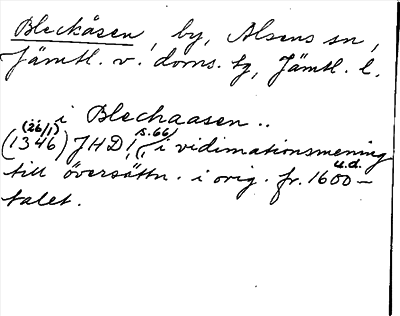 Bleckåsen, by, Alsens sn,
Jämtl. v. doms. tg, Jämtl. l.
i Blechaasen..
(26/1) s. 66
(1346) JHD 1, i vidimationsmening
u.d.
till översättn. i orig. fr. 1600-
talet.